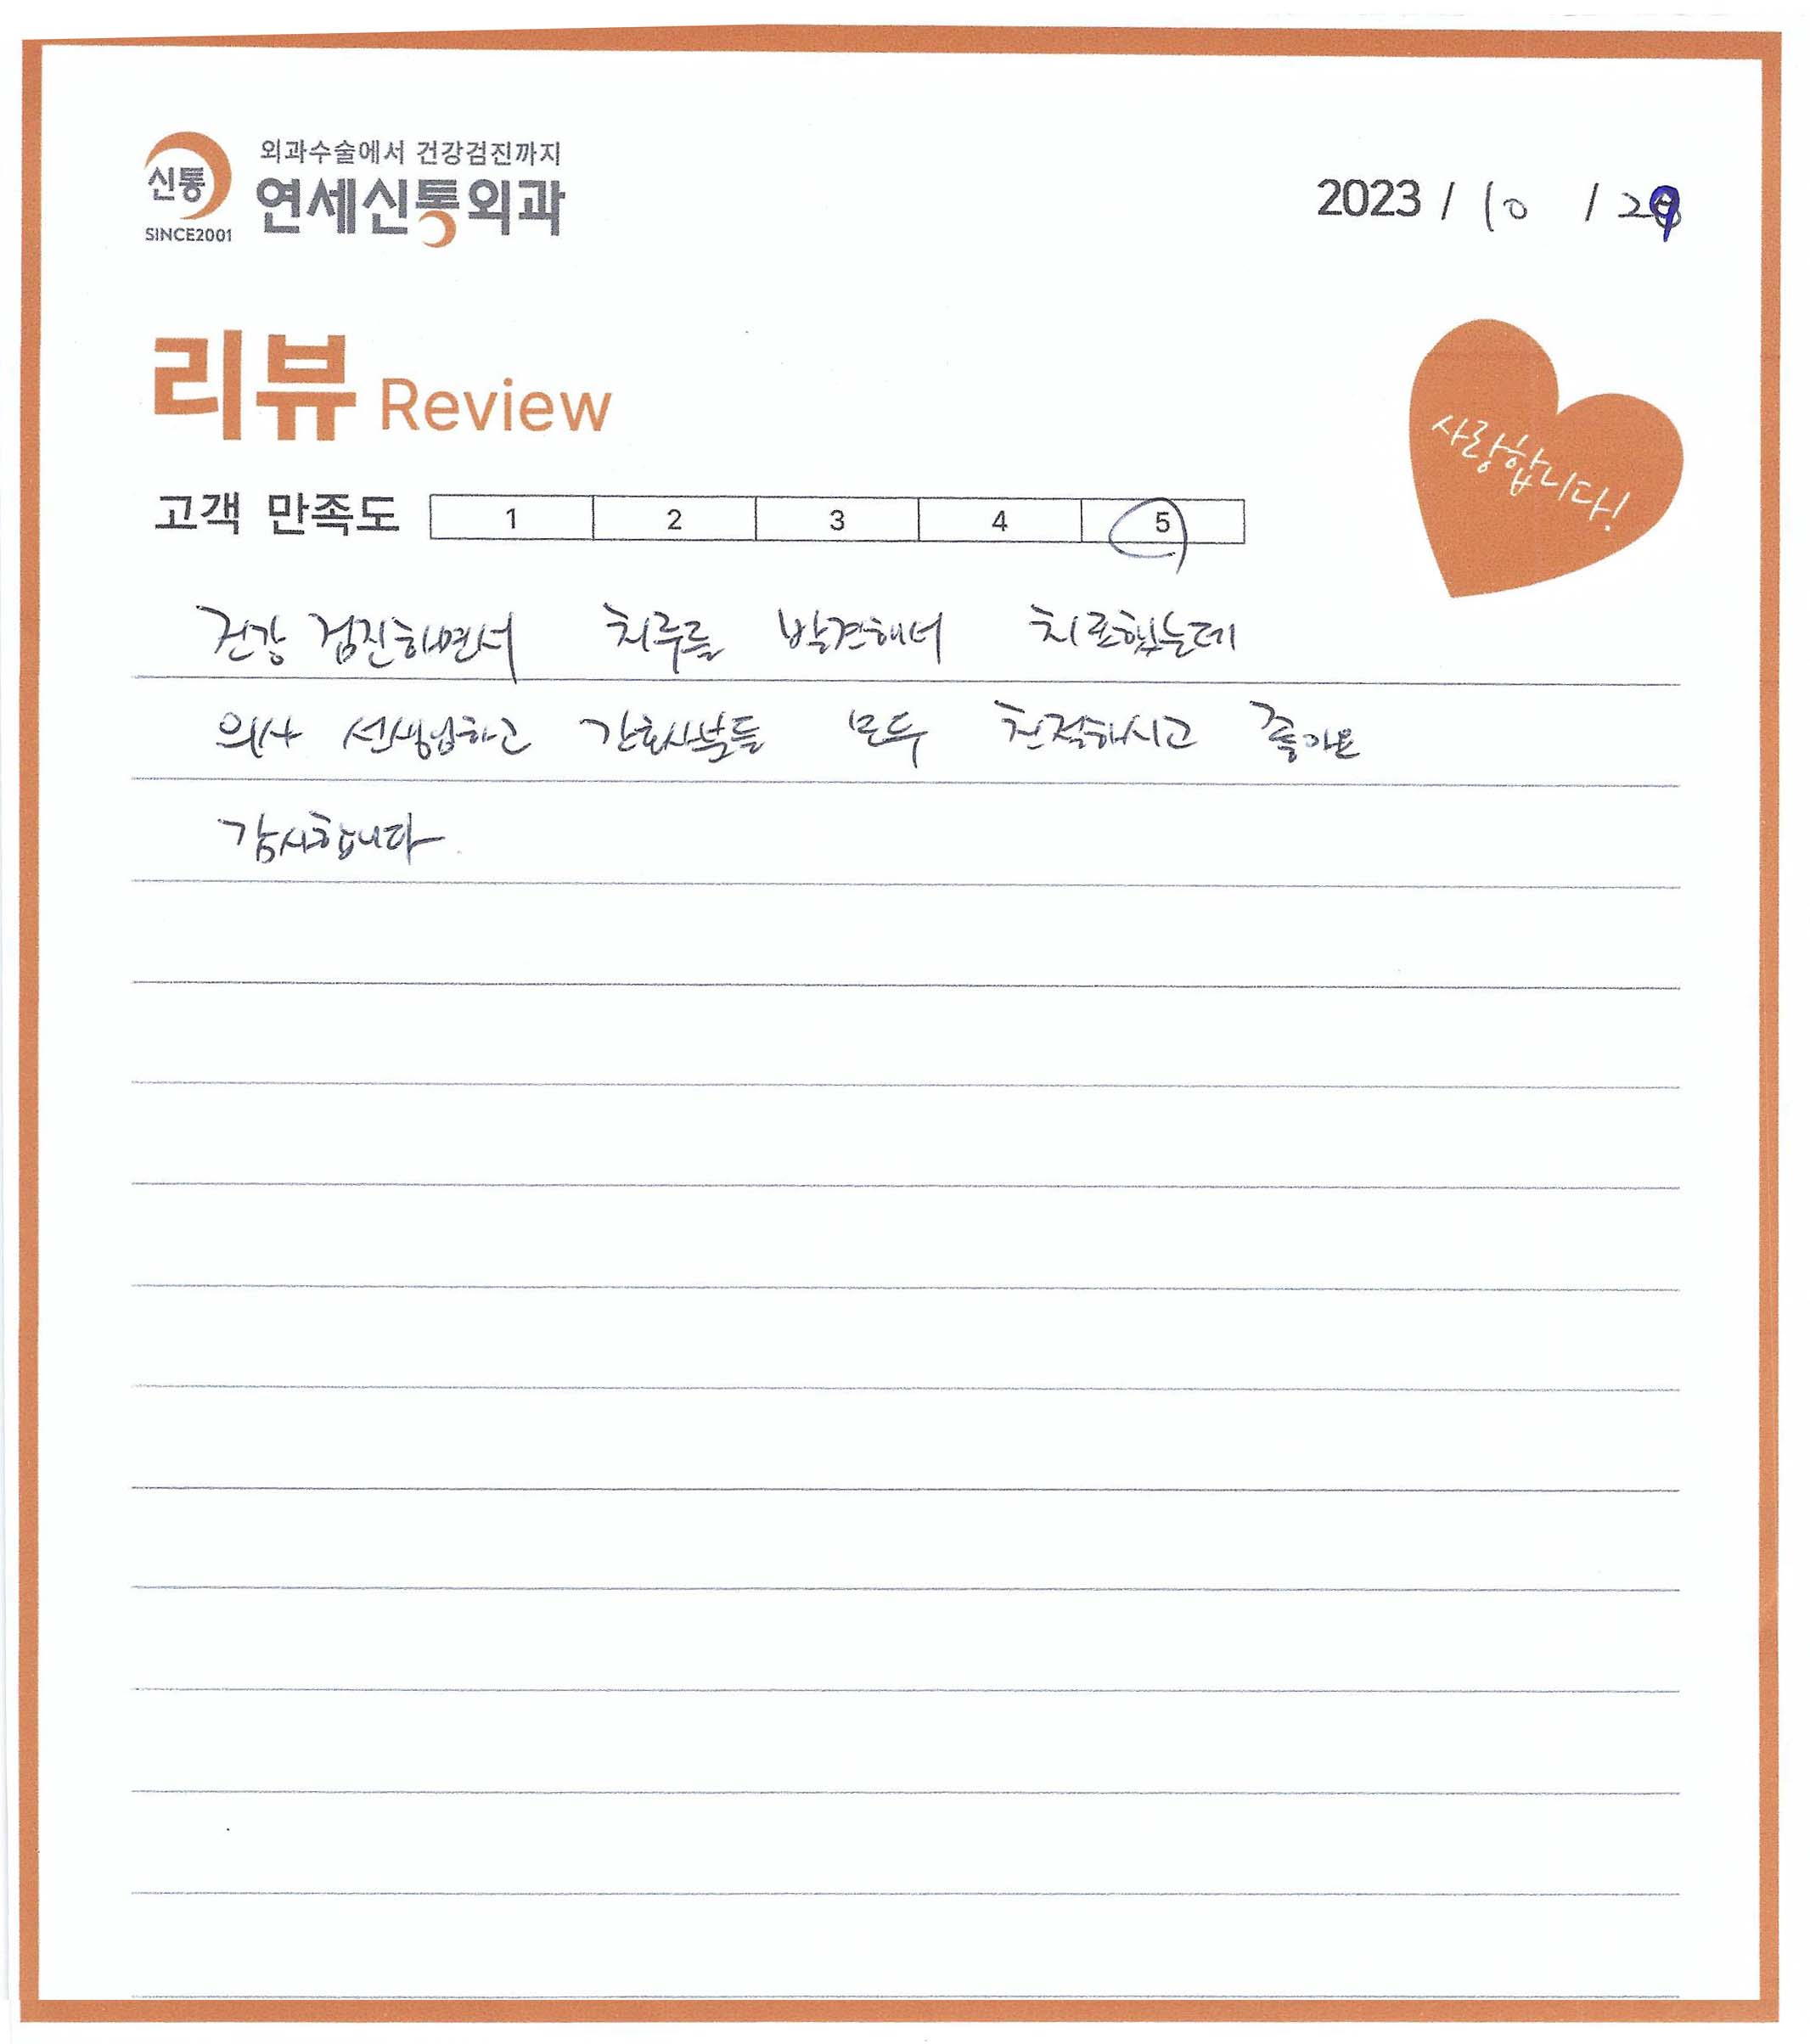 외과수술에서 건강검진까지
신통
연세신통외과
SINCE2001
2023 / 10 / 29
리뷰 Review
사랑합니다!
고객 만족도 1 2 3 4 5
건강 검진하면서 치루를 발견해서 치료했는데
의사 선생님하고 간호사분들 모두 친절하시고 좋아요
감사합니다.